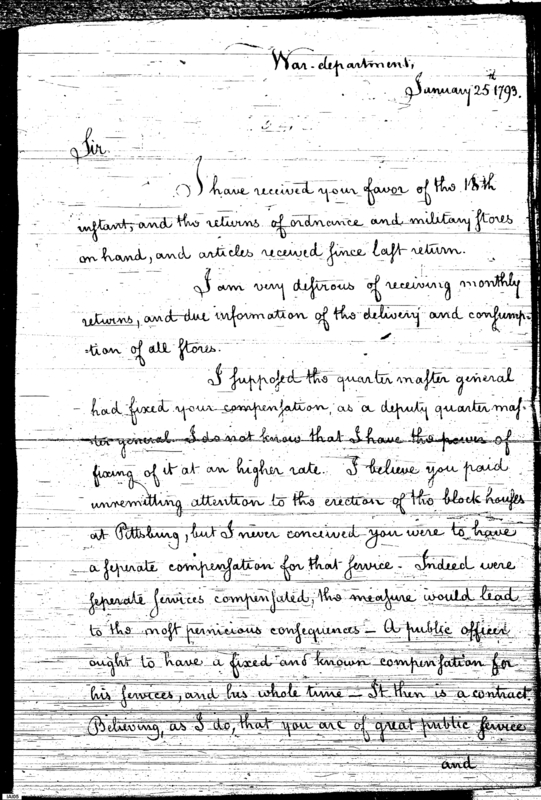 War-department,
January 25th 1793.
Sir
I have received your favor of the 18th
instant, and the returns of ordnance and military stores
on hand, and articles received since last return.
I am very desirous of receiving monthly
returns, and due information of the delivery and consump-
-tion of all stores.
I supposed the quarter master general
had fixed your compensation, as a deputy quarter mas-
-ter general. I do not know that I have the power of
fixing of it at an higher rate. I believe you paid
unremitting attention to the erection of the block houses
at Pittsburg, but I never conceived you were to have
a seperate compensation for that service - Indeed were
seperate services compensated, the measure would lead
to the most pernicious consequences - A public officer
ought to have a fixed and known compensation for
his services, and his whole time - It then is a contract.
Believing, as I do, that you are of great public service
and